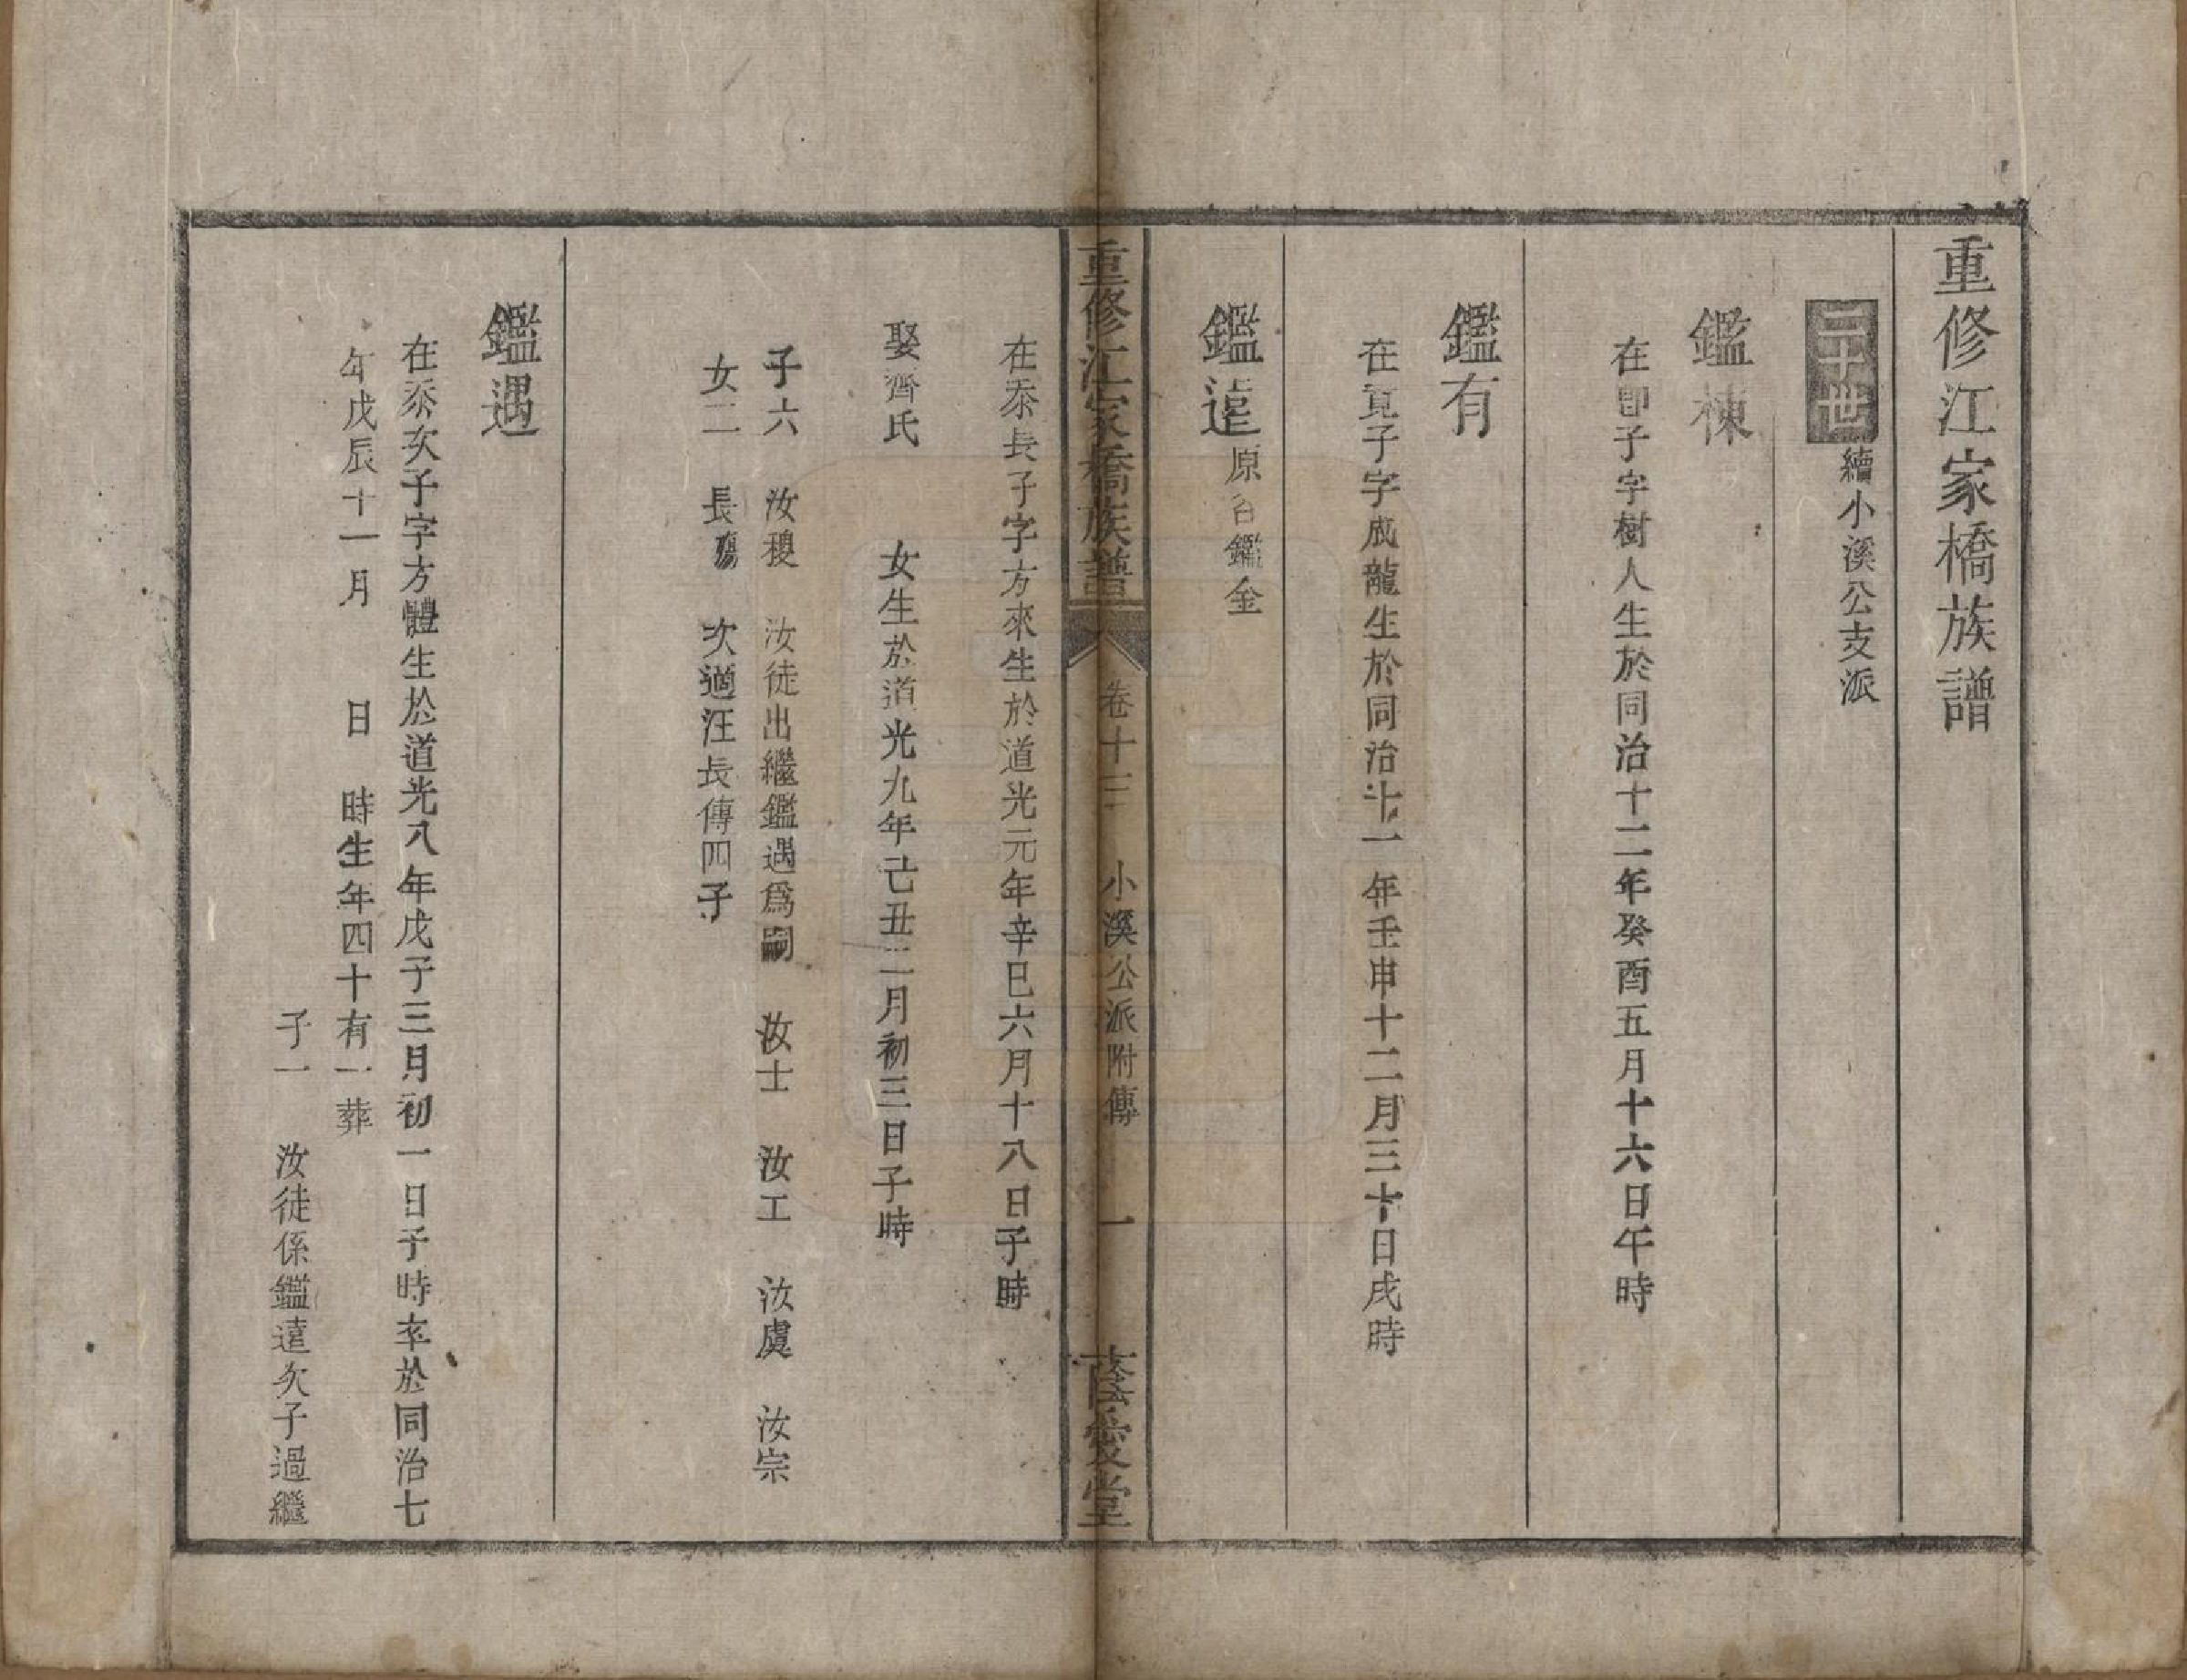 重修江家橋族譜
三十世 續小溪公支派
鑑棟
在卽子字樹人生於同治十二年癸酉五月十六日午時
鑑有
在寬子字成龍生於同治十一年壬申十二月三十日戌時
鑑達 原名鑑金
重修江家橋族譜 卷十二 小溪公派附傳 一 蔭愛堂
在泰長子字方來生於道光元年辛巳六月十八日子時
娶齊氏 女生於道光九年己丑二月初三日子時
子六 汝稷 汝徒出繼鑑遇爲嗣 汝士 汝工 汝虞 汝宗
女二 長殤 次適汪長傳四子
鑑遇
在泰次子字方體生於道光八年戊子三月初一日子時卒於同治七
年戊辰十一月 日 時生年四十有一葬
子一 汝徒係鑑達次子過繼